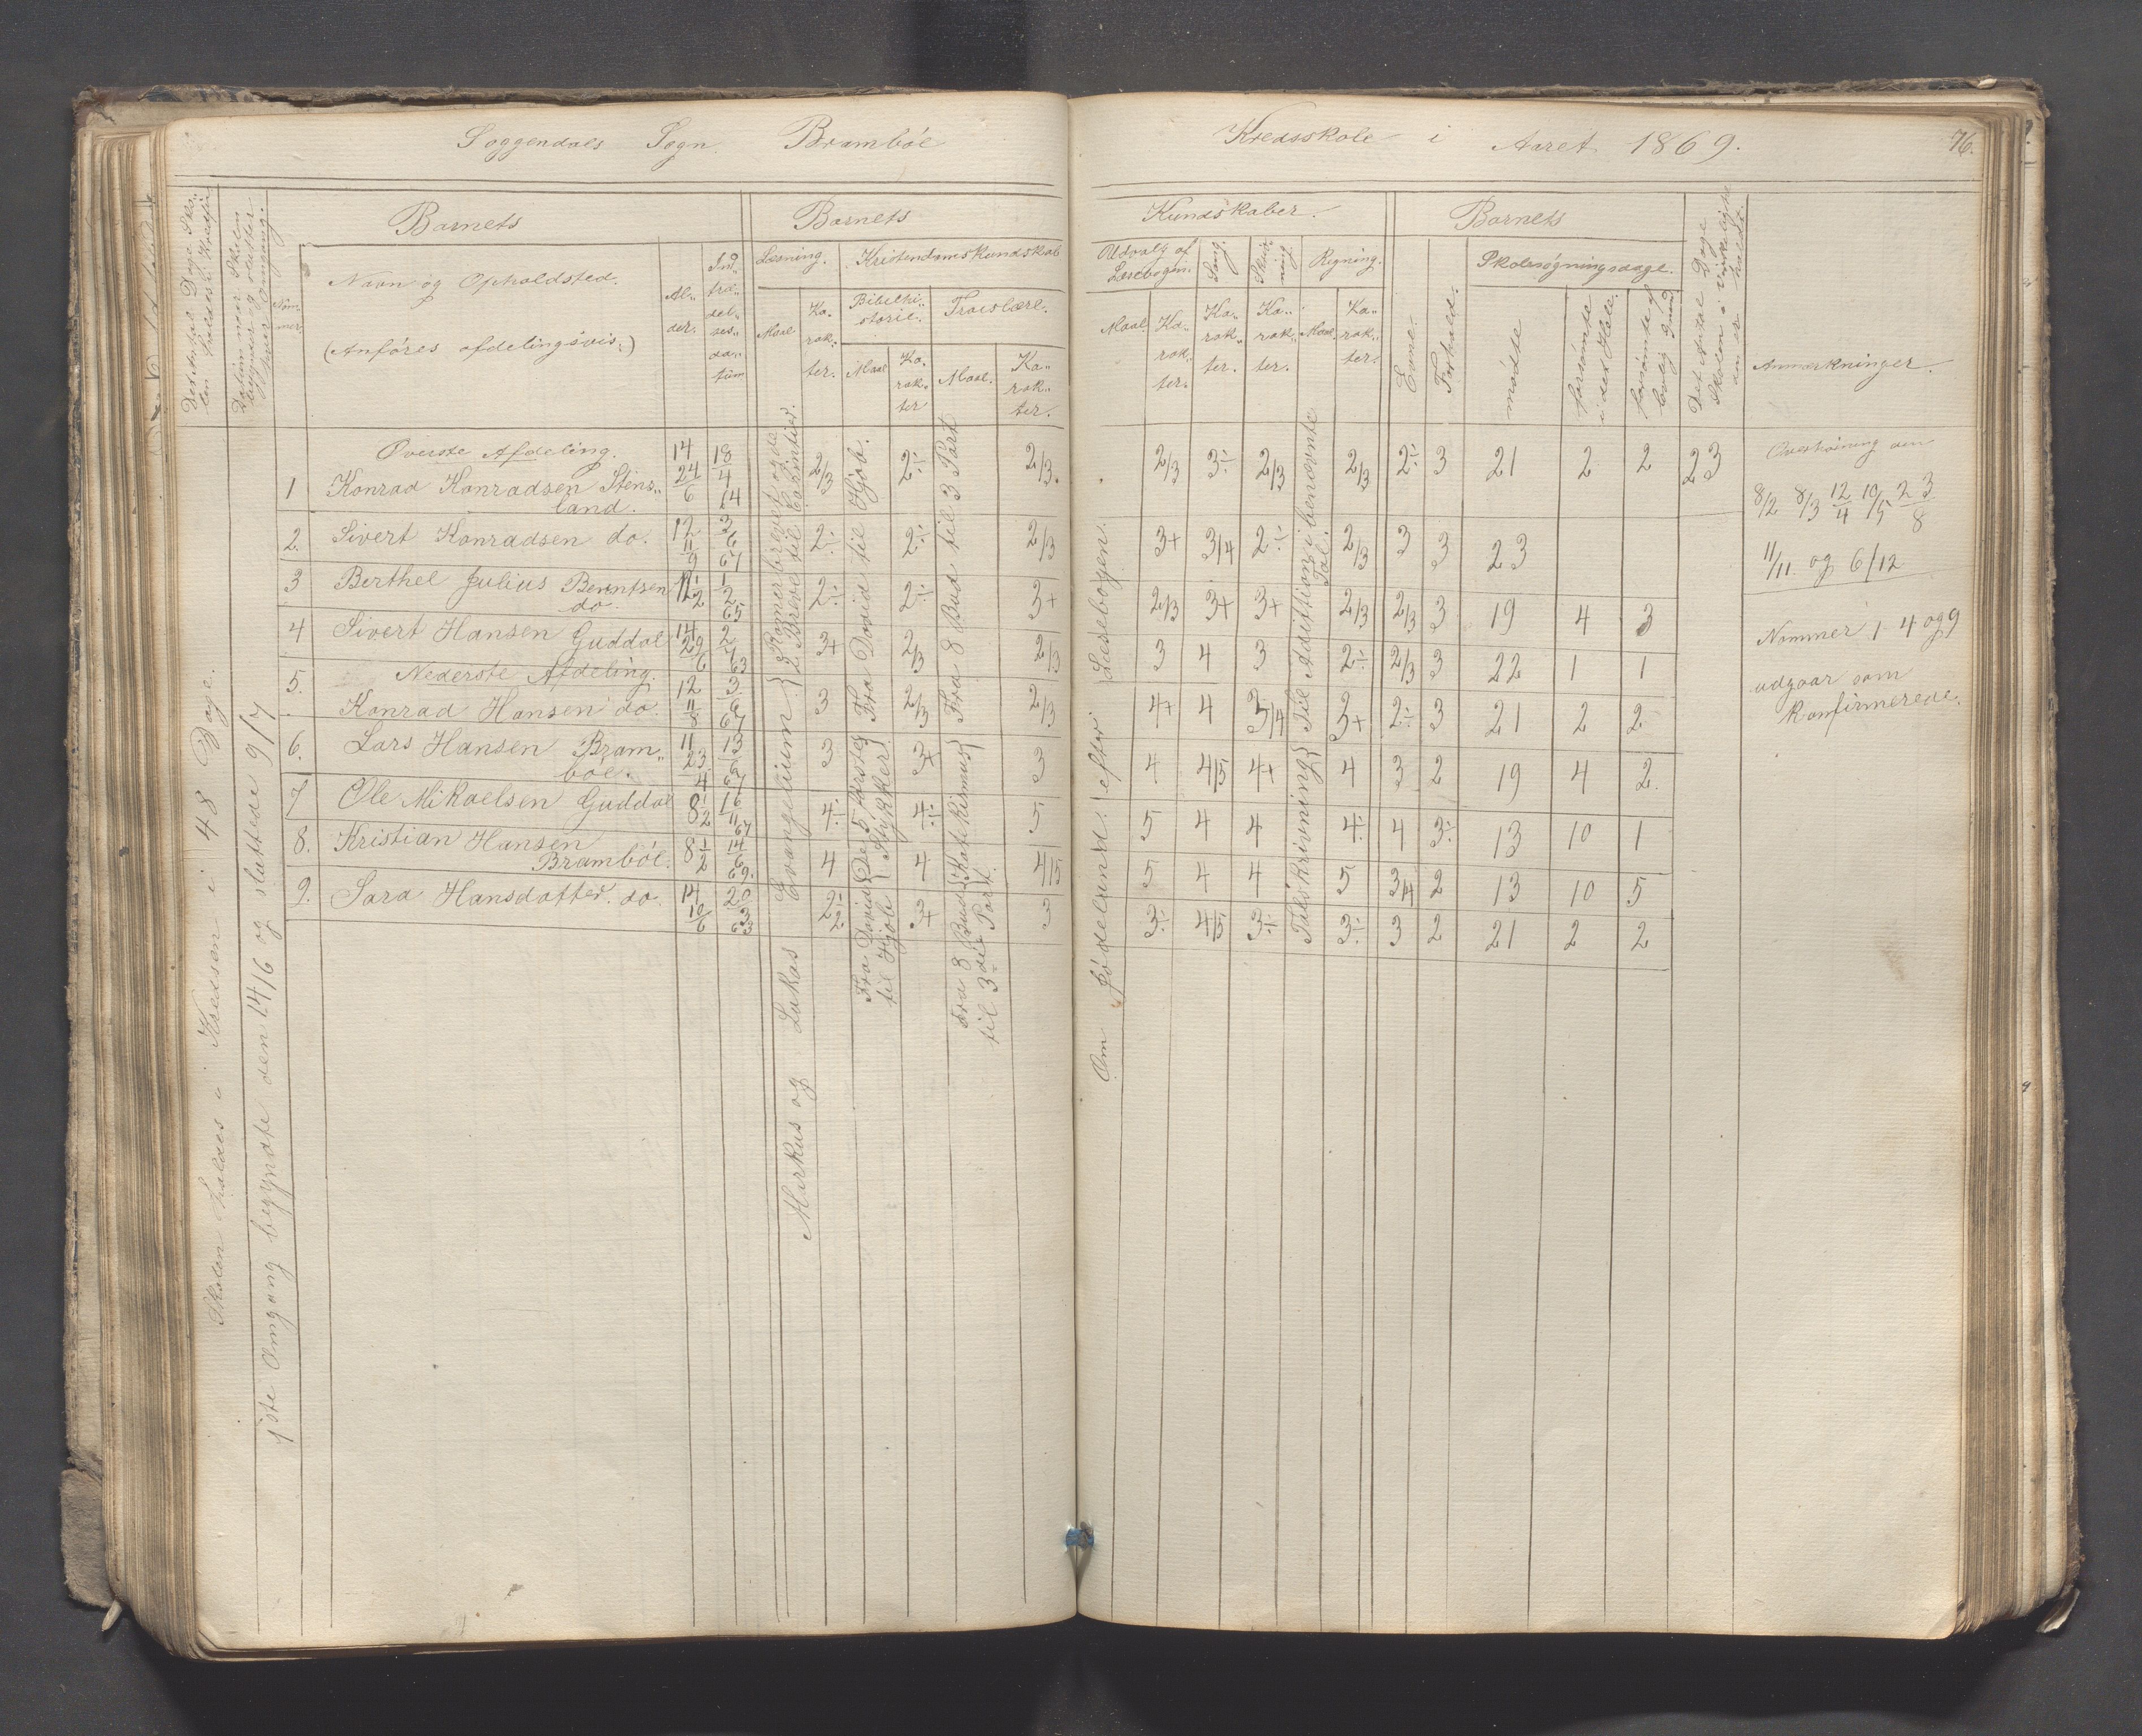 Soggendals Sogn. Bramböe Kredsskole i Aaret 1869. 76.
Det Antal Dage Skolen holdes i Kredsen
Datum naar Skolen begynder og slutter hver Omgang.
Nommer
Barnets
Navn og Opholdsted.
(Anföres afdelingsvis:)
Alder.
Indtrædelsesdatum
Barnets
Læsning.
Maal
Karakter.
Kristendomskundskab
Bibelhistorie.
Maal
Karakter
Troeslære.
Maal.
Karakter.
Kundskaber.
Udvalg af Læsebogen.
Maal
Karakter.
Sang.
Karakter.
Skrivning.
Karakter.
Regning.
Maal.
Karakter.
Barnets
Evne.
Forhold.
Skolesögningsdage.
mödte
forsömte i det Hele.
forsömte af lovlig Grund
Det Antal Dage Skolen i Virkeligheden er holdt.
Anmærkninger.
Skolen holdes i Kredsen i 48 Dage.
1ste Omgang begyndte den 14/6 og sluttede 9/7
Överste Afdeling.
1 Konrad Konradsen Stensland. 14 24/6 18/4 64 2/3 2÷ 2/3. 2/3 3÷ 2/3 2/3 2÷ 3 21 2 2 23
2. Sivert Konradsen do. 12 11/9 3/6 67 2÷ 2÷ 2/3 3+ 3/4 2÷ 2/3 3 3 23
3 Berthel Julius Berntsen do. 12 1/2 1/2 65 2÷ 2÷ 3+ 2/3 3+ 3+ 2/3 2/3 3 19 4 3
4 Sivert Hansen Guddal 14 29/6 2/7 63 3+ 2/3 2/3 3 4 3 2÷ 2/3 3 22 1 1
Nederste Afdeling.
5. Konrad Hansen do. 12 3/6 67 3 2/3 2/3 4+ 4 3/4 3+ 2÷ 3 21 2 2
6. Lars Hansen Bramböe. 11 23/4 13/6 67 3 3+ 3 4 4/5 4+ 4 3 2 19 4 2.
7 Ole Mikaelsen Guddal 8 1/2 16/11 67 4÷ 4÷ 5 5 4 4 4÷ 4 3÷ 13 10 1
8. Kristian Hansen Bramböe. 8 1/2 14/6 69. 4 4 4/5 5 4 4 5 3/4 2 13 10 5
9. Sara Hansdatter. do. 14 10/6 20/3 63 2÷ 3+ 3 3÷ 4/5 3÷ 3÷ 3 2 21 2 2
Markus og Lukas Evangelium { Romerbrevet og de 2 Breve til Corintier.
Fra David til Hjob.
Fra David til Hjob { De 5 förste Stykker
Fra 8 Bud til 3 Part
Fra 3 Bud til 3die Part. { Katekismus
Om Födelandet efter Læsebogen.
Talskrivning } Til Addition i benævnte Tal.
Overhöring den
8/2 8/3 12/4 10/5 23/8
11/11. og 6/12
Nommer 1 4 og 9
udgaar som
konfirmerede.